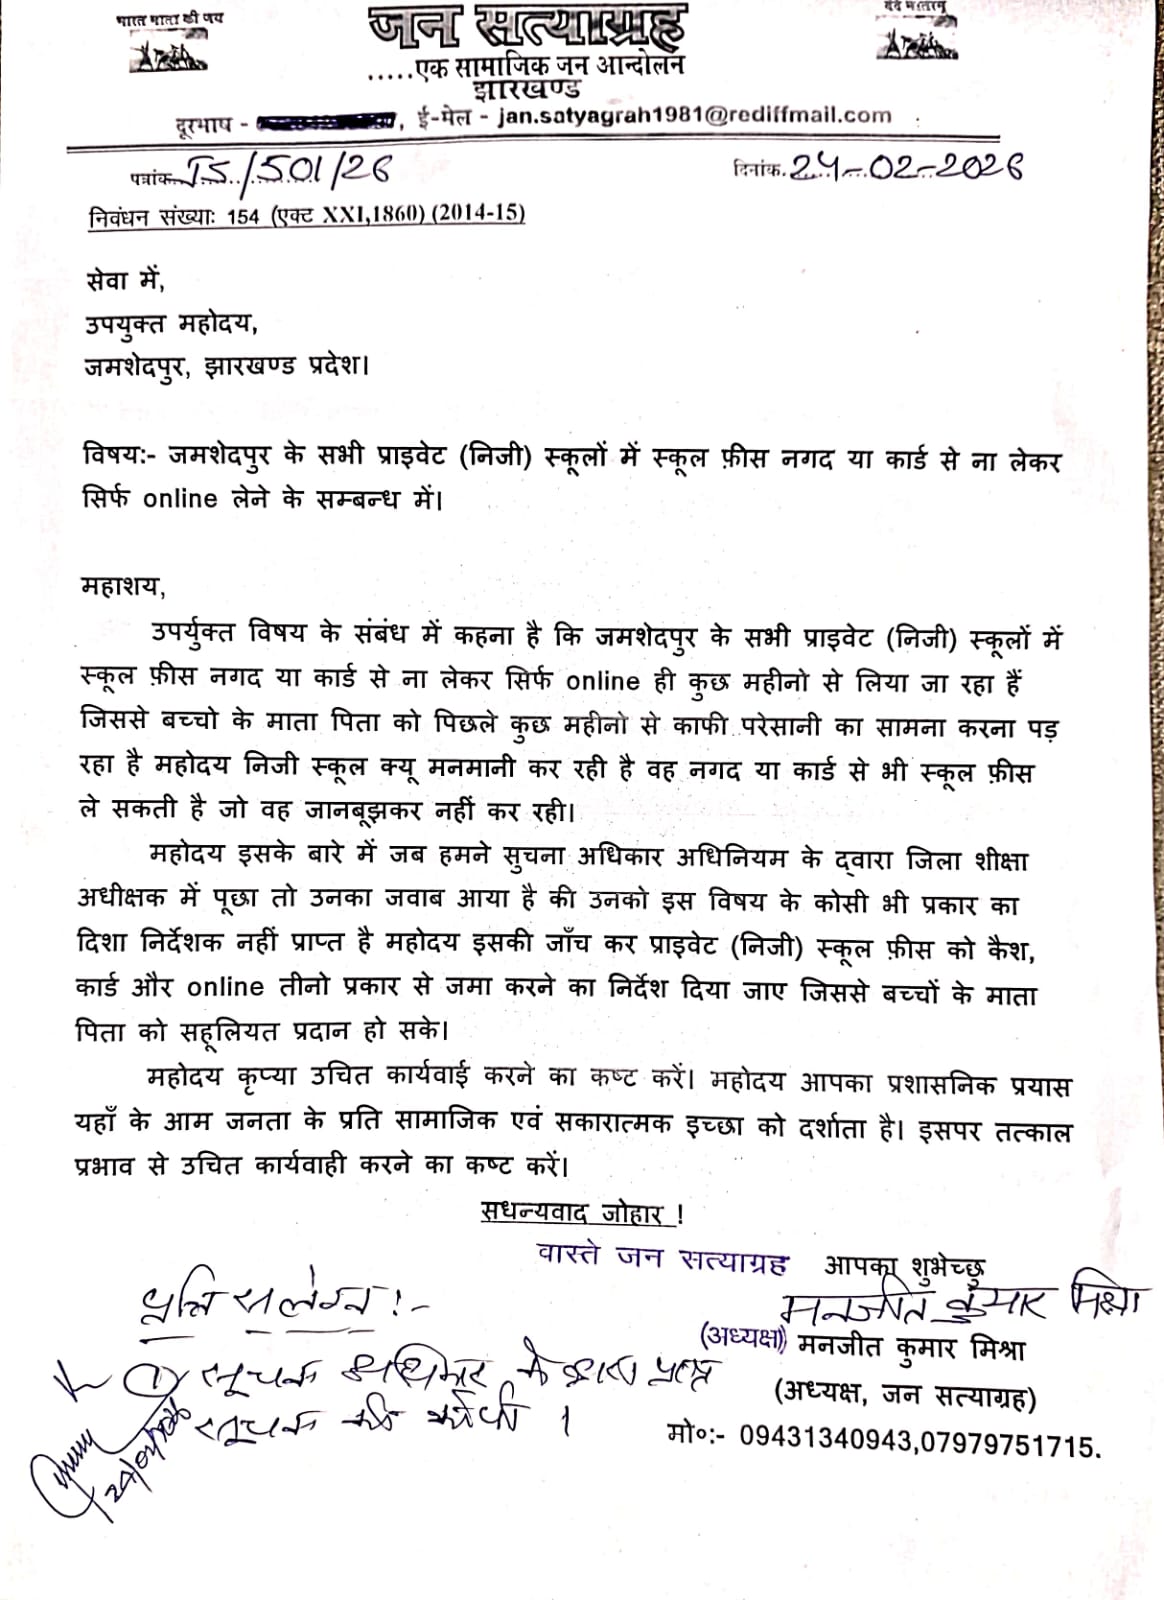 भारत माता की जय
वंदे मातरम्
जन सत्याग्रह
.....एक सामाजिक जन आन्दोलन
झारखण्ड
दूरभाष - , ई-मेल - jan.satyagrah1981@rediffmail.com
पत्रांक. JS/501/26
दिनांक. 24-02-2026
निवंधन संख्याः 154 (एक्ट XXI,1860) (2014-15)
सेवा में,
उपयुक्त महोदय,
जमशेदपुर, झारखण्ड प्रदेश।
विषय:- जमशेदपुर के सभी प्राइवेट (निजी) स्कूलों में स्कूल फ़ीस नगद या कार्ड से ना लेकर
सिर्फ online लेने के सम्बन्ध में।
महाशय,
उपर्युक्त विषय के संबंध में कहना है कि जमशेदपुर के सभी प्राइवेट (निजी) स्कूलों में
स्कूल फ़ीस नगद या कार्ड से ना लेकर सिर्फ online ही कुछ महीनो से लिया जा रहा हैं
जिससे बच्चो के माता पिता को पिछले कुछ महीनो से काफी परेसानी का सामना करना पड़
रहा है महोदय निजी स्कूल क्यू मनमानी कर रही है वह नगद या कार्ड से भी स्कूल फ़ीस
ले सकती है जो वह जानबूझकर नहीं कर रही।
महोदय इसके बारे में जब हमने सुचना अधिकार अधिनियम के द्वारा जिला शीक्षा
अधीक्षक में पूछा तो उनका जवाब आया है की उनको इस विषय के कोसी भी प्रकार का
दिशा निर्देशक नहीं प्राप्त है महोदय इसकी जाँच कर प्राइवेट (निजी) स्कूल फ़ीस को कैश,
कार्ड और online तीनो प्रकार से जमा करने का निर्देश दिया जाए जिससे बच्चों के माता
पिता को सहूलियत प्रदान हो सके।
महोदय कृप्या उचित कार्यवाई करने का कष्ट करें। महोदय आपका प्रशासनिक प्रयास
यहाँ के आम जनता के प्रति सामाजिक एवं सकारात्मक इच्छा को दर्शाता है। इसपर तत्काल
प्रभाव से उचित कार्यवाही करने का कष्ट करें।
सधन्यवाद जोहार !
वास्ते जन सत्याग्रह आपका शुभेच्छु
मनजीत कुमार मिश्रा
(अध्यक्ष) मनजीत कुमार मिश्रा
(अध्यक्ष, जन सत्याग्रह)
मो०:- 09431340943,07979751715.
प्रति संलग्न !-
① सूचना अधिकार के द्वारा प्राप्त
सूचना की कॉपी ।
24/02/26